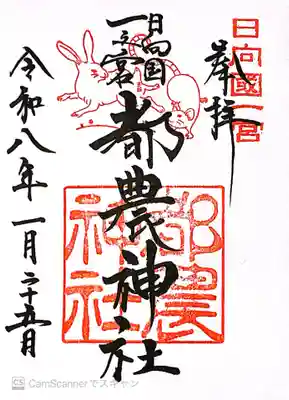 日向國一宮
奉拝
日向国
一之宮
都農神社
都農
神社
令和八年一月二十五日
CS CamScannerでスキャン